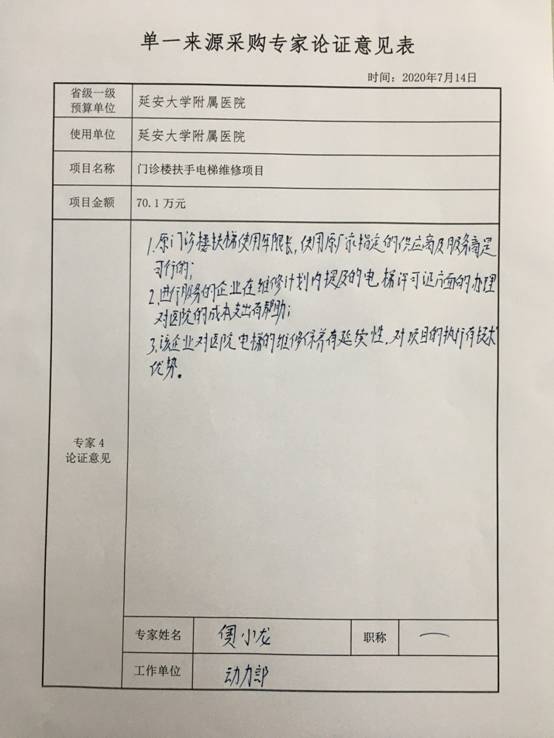 单一来源采购专家论证意见表
时间：2020年7月14日
省级一级
预算单位
延安大学附属医院
使用单位
延安大学附属医院
项目名称
门诊楼扶手电梯维修项目
项目金额
70.1万元
1.原门诊楼扶梯使用年限长，使用原厂家指定的供应商及服务商是
可行的；
2.进行服务的企业在维修计划内提及的电梯许可证方面的办理
对医院的成本支出有帮助；
3.该企业对医院电梯的维修保养有延续性，对项目的执行有技术
优势。
专家4
论证意见
专家姓名
小龙
职称
一
工作单位
动力部